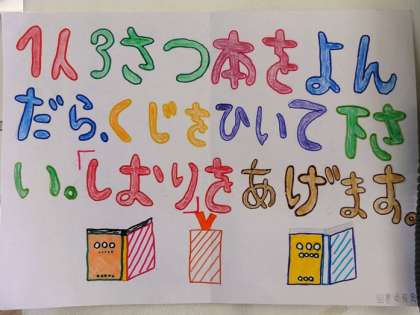 1人3さつ本をよん
だら、くじをひいて下さ
い。「しおり」をあげます。